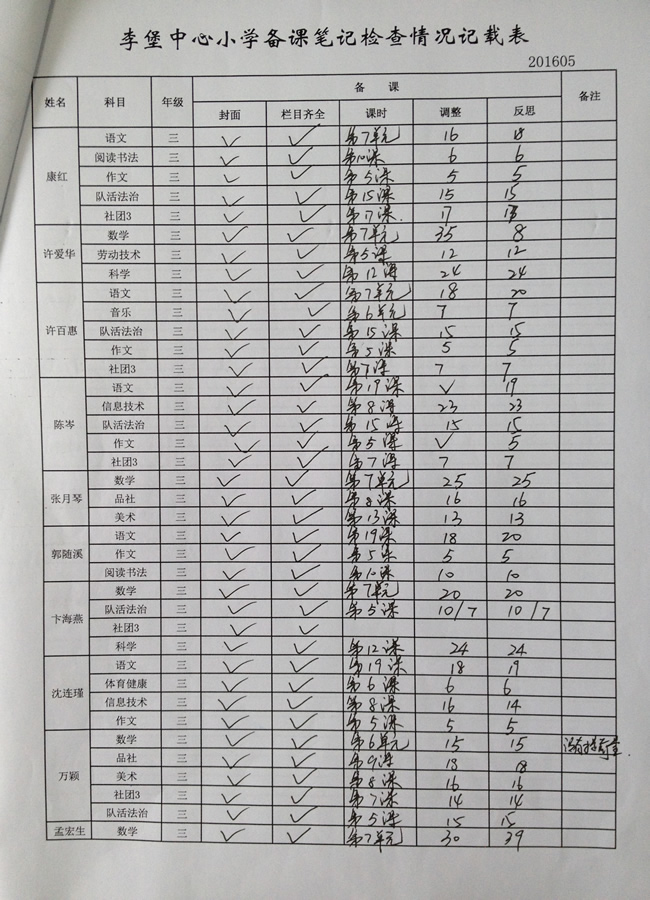 李堡中心小学备课笔记检查情况记载表
201605
姓名 科目 年级 备 课 备注
封面 栏目齐全 课时 调整 反思
康红 语文 三 ✓ ✓ 第7单元 16 18
阅读书法 三 ✓ ✓ 第10课 6 6
作文 三 ✓ ✓ 第5课 5 5
队活法治 三 ✓ ✓ 第15课 15 15
社团3 三 ✓ ✓ 第17课 17
许爱华 数学 三 ✓ ✓ 第7单元 35 8
劳动技术 三 ✓ ✓ 第5课 12 12
科学 三 ✓ ✓ 第12课 24 24
许百惠 语文 三 ✓ ✓ 第7单元 18 20
音乐 三 ✓ ✓ 第6单元 7 7
队活法治 三 ✓ ✓ 第15课 15 15
作文 三 ✓ ✓ 第5课 5 5
社团3 三 ✓ ✓ 第7课 7 7
陈岑 语文 三 ✓ ✓ 第19课 ✓ 19
信息技术 三 ✓ ✓ 第8课 23 23
队活法治 三 ✓ ✓ 第15课 15 15
作文 三 ✓ ✓ 第5课 ✓ 5
社团3 三 ✓ ✓ 第7课 7 7
张月琴 数学 三 ✓ ✓ 第7单元 25 25
品社 三 ✓ ✓ 第8课 16 16
美术 三 ✓ ✓ 第13课 13 13
郭随溪 语文 三 ✓ ✓ 第19课 18 20
作文 三 ✓ ✓ 第5课 5 5
阅读书法 三 ✓ ✓ 第10课 10 10
卞海燕 数学 三 ✓ ✓ 第7单元 20 20
队活法治 三 ✓ ✓ 第5课 10/7 10/7
社团3 三 ✓ ✓
科学 三 ✓ ✓ 第12课 24 24
沈连瑾 语文 三 ✓ ✓ 第19课 18 19
体育健康 三 ✓ ✓ 第6课 6 6
信息技术 三 ✓ ✓ 第8课 16 14
作文 三 ✓ ✓ 第5课 5 5
万颖 数学 三 ✓ ✓ 第6单元 15 15
品社 三 ✓ ✓ 第9课 18 18
美术 三 ✓ ✓ 第8课 16 16
社团3 三 ✓ ✓ 第7课 14 14
队活法治 三 ✓ ✓ 第5课 15 15
孟宏生 数学 三 ✓ ✓ 第7单元 30 39